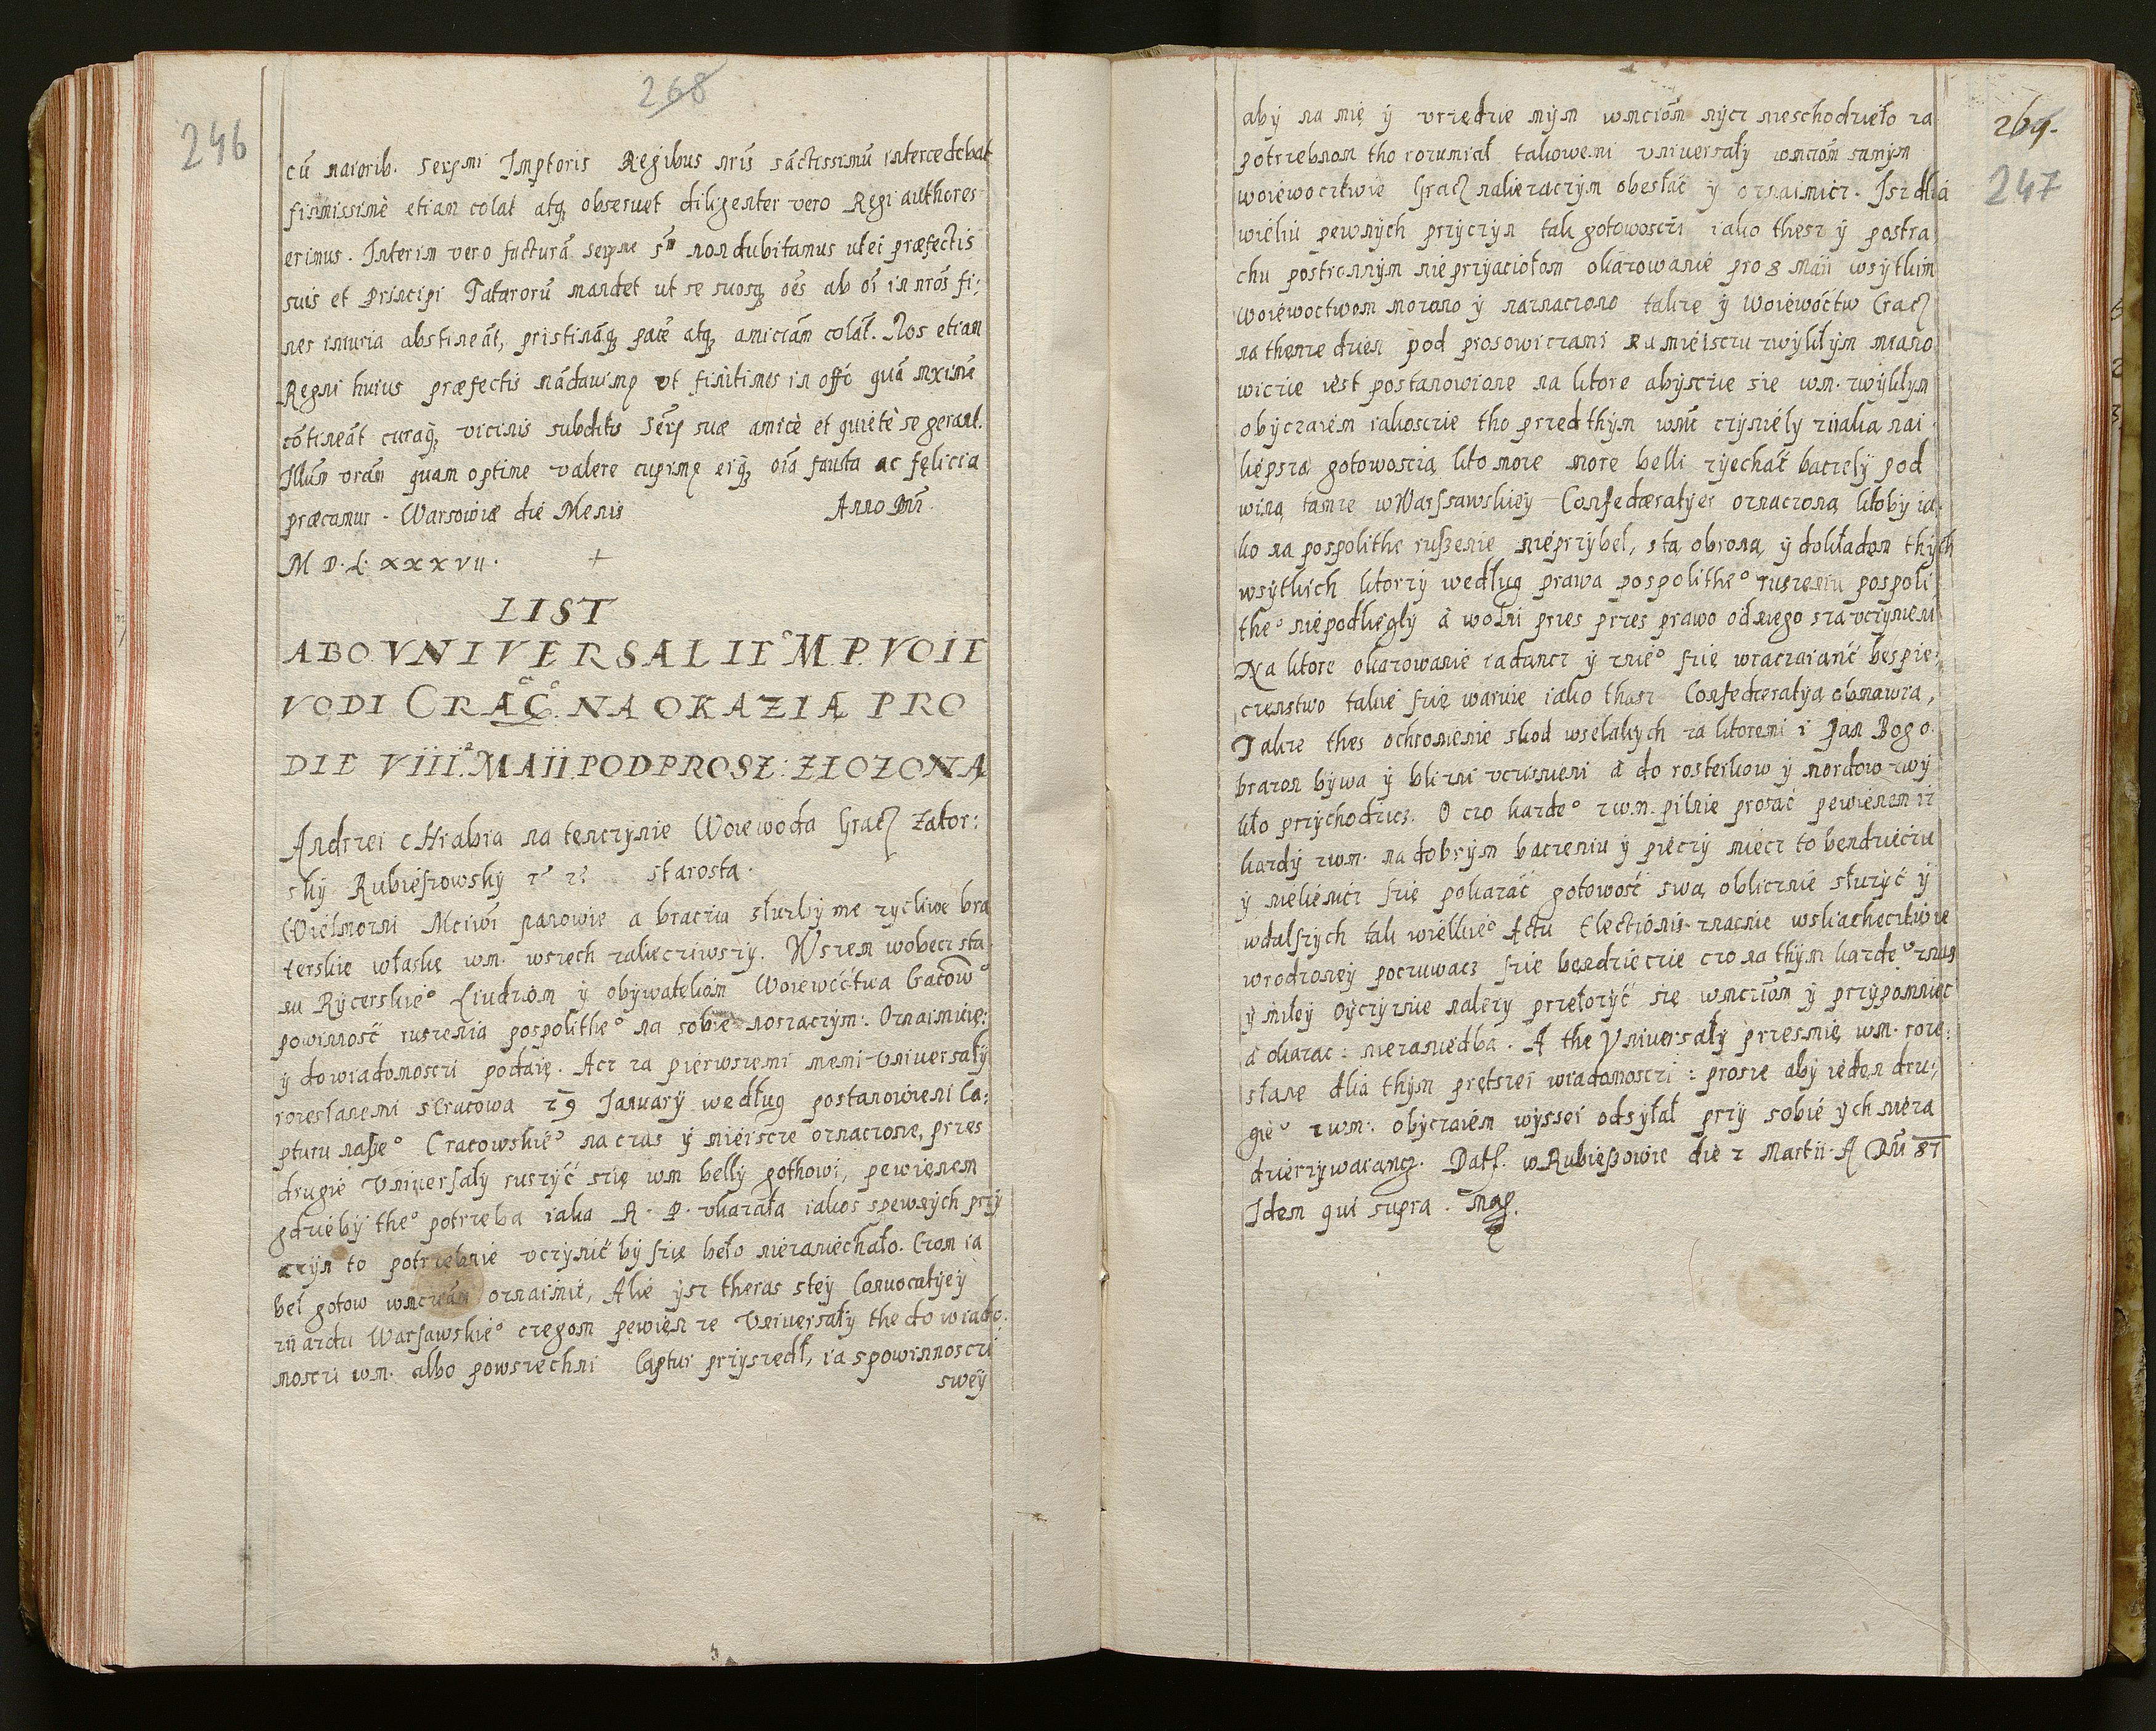 268
246
cū maiorib. Serꝑmi Imꝑtoris Regibus nrīs sāctissimū intercedebat
firmissimè etiam colat atq₃ obseruet diligenter vero Regi authores
erimus. Interim vero facturā serꝑne S non dubitamus ut ei præfectis
suis et Principi Tatarorū mandet ut se suosq₃ oēs ab oī in nrōs fi:
nes iniuria abstineāt, pristināq₃ pacē atq₃ amiciām colāt. Nos etiam
Regni huius præfectis mādauimꝰ ut finitimos in offō quā mximè
cōtineāt curaq₃ vicinis subditis Serꝑ suæ amicè et quietè se gerant.
Illūm vrām quam optime valere cupimꝰ eiq₃ oiā fausta ac felicia
præcamur. Warsoviæ die Menis Anno Dnī.
M D. L. xxxvii. +
LIST
ABO VNIVERSAL IE° M.P. VOIE
VODI CRAC. NA OKAZIĄ PRO
DIE VIII. MAII POD PROSZ: ZŁOZONĄ
Andrzei cHrabia na tenczynie Woiewoda Crac Zator:
skÿ Rubiészowskÿ starosta.
Wiélmozni Mciwi panowie a braczia służbÿ me zyczliwe bra
terskie własķę wm. wszech zaliecziwszy. Wszem wobecz sta
nu Rÿcerskié° Liudziom ÿ obÿwateliom Woiewōctwa Cracow°
powinność ruszenia pospolithe° na sobie noszaczÿm:. Oznaimuię:
ÿ dowiadomosczi podaię. Acz za piérwszemi memi Vniuersałÿ
rozesłanemi sCracowa 29 Januarÿ według postanowieni Ca:
pturu naße° Cracowskié° na czas ÿ miéiscze oznaczone, przes
drugié Vniuersałÿ ruszÿć szię wm bellÿ gothowi, pewienem
gdziébÿ the° potrzeba iaka R. P. vkazała iakos spewnÿch przÿ
czÿn to potrzebnie vczÿnić bÿ szię beło niézaniéchało. Czom ia
beł gotow wmcziām oznaimić, Alié ÿsz theras stéÿ Conuocatÿéÿ
zÿazdu Warsawskié° czegom pewien ze Vniuersałÿ the do wiado:
mosczi wm. albo powszechni Captur przÿszedł, ia spowinnosczi
sweÿ
269.
247
abÿ na mię ÿ vrzędzie mÿm wmciōm nÿcz nieschodzieło za
potrzebnom tho rozumiał takowemi vniuersałÿ wmciōm samÿm
woiéwocztwie Crac nalieżaczÿm obesłać ÿ oznaimicz. Isz dlia
wiéliu pewnÿch przÿczÿn tak gotowosczi iako thesz ÿ postra
chu postronnÿm niéprzÿaciołom okazowanié pro 8 Maii wsÿtkim
woiéwoctwom mozono ÿ naznaczono takze ÿ woiéwóctw Crac
na thenze dzién pod prosowiczami na miéisczu zwÿkłÿm miano
wiczie iést postanowione na ktore abÿsczie sie wm. zwÿkłÿm
obÿczaiém iakosczie tho przed thÿm wmć czÿniélÿ ziiaką nai
liépszą gotowoscią kto może more belli zjechać baczelÿ pod
winą tamże wWarssawskiéÿ Confœderatÿéi oznaczoną ktobÿ ia:
ko na pospolithe rußenie niéprzÿbeł, stą obroną ÿ dokładem thÿch
wsÿtkich ktorzÿ według prawa pospolithe° ruszeniu pospoli
the° niépodliegłÿ á wolni przes przes prawo odniego szą vczÿnieni
Na ktore okazowanié iadancz ÿ znié° szię wraczaianć bespié:
czenstwo takié szię waruie iako thasz Confœderatÿa obmawia,
Takze thes ochronienié skod wseliakÿch za ktoremi i Pan Bogo.
brazon bÿwa ÿ bliźni vcisnieni á do rosterkow ÿ mordow zwÿ
kło przÿchodzicz. O czo karde° z wm. pilnie prosząć pewiénem iż
kardÿ zwm. na dobrÿm baczeniu ÿ piéczÿ miécz to bendziécziu
ÿ niéliénicz szię pokazać gotowość swą oblicznie służÿć ÿ
wdalszÿch tak wielkié° Actu Electionis znacnie wsliachecztwie
wrodzonéÿ poczuwacz szie bendziéczie czo na thÿm karde°
ÿ miłéÿ oÿczÿznie nalieżÿ przełożÿć się wmcziōm ÿ przÿpomniéć
á okazac: niezaniedba. A the Vniuersałÿ przesmię wm. roze:
słane dlia thÿm prętszei wiadomosczi: proszę abÿ iéden dru:
gié° zwm:. obÿczaiém wÿssei odsÿłał przÿ sobié ÿch niéza
dzierzÿwaiancz. Datt. wRubießowie die 2 Martii. A Dnī 87
Idem qui supra. mp.